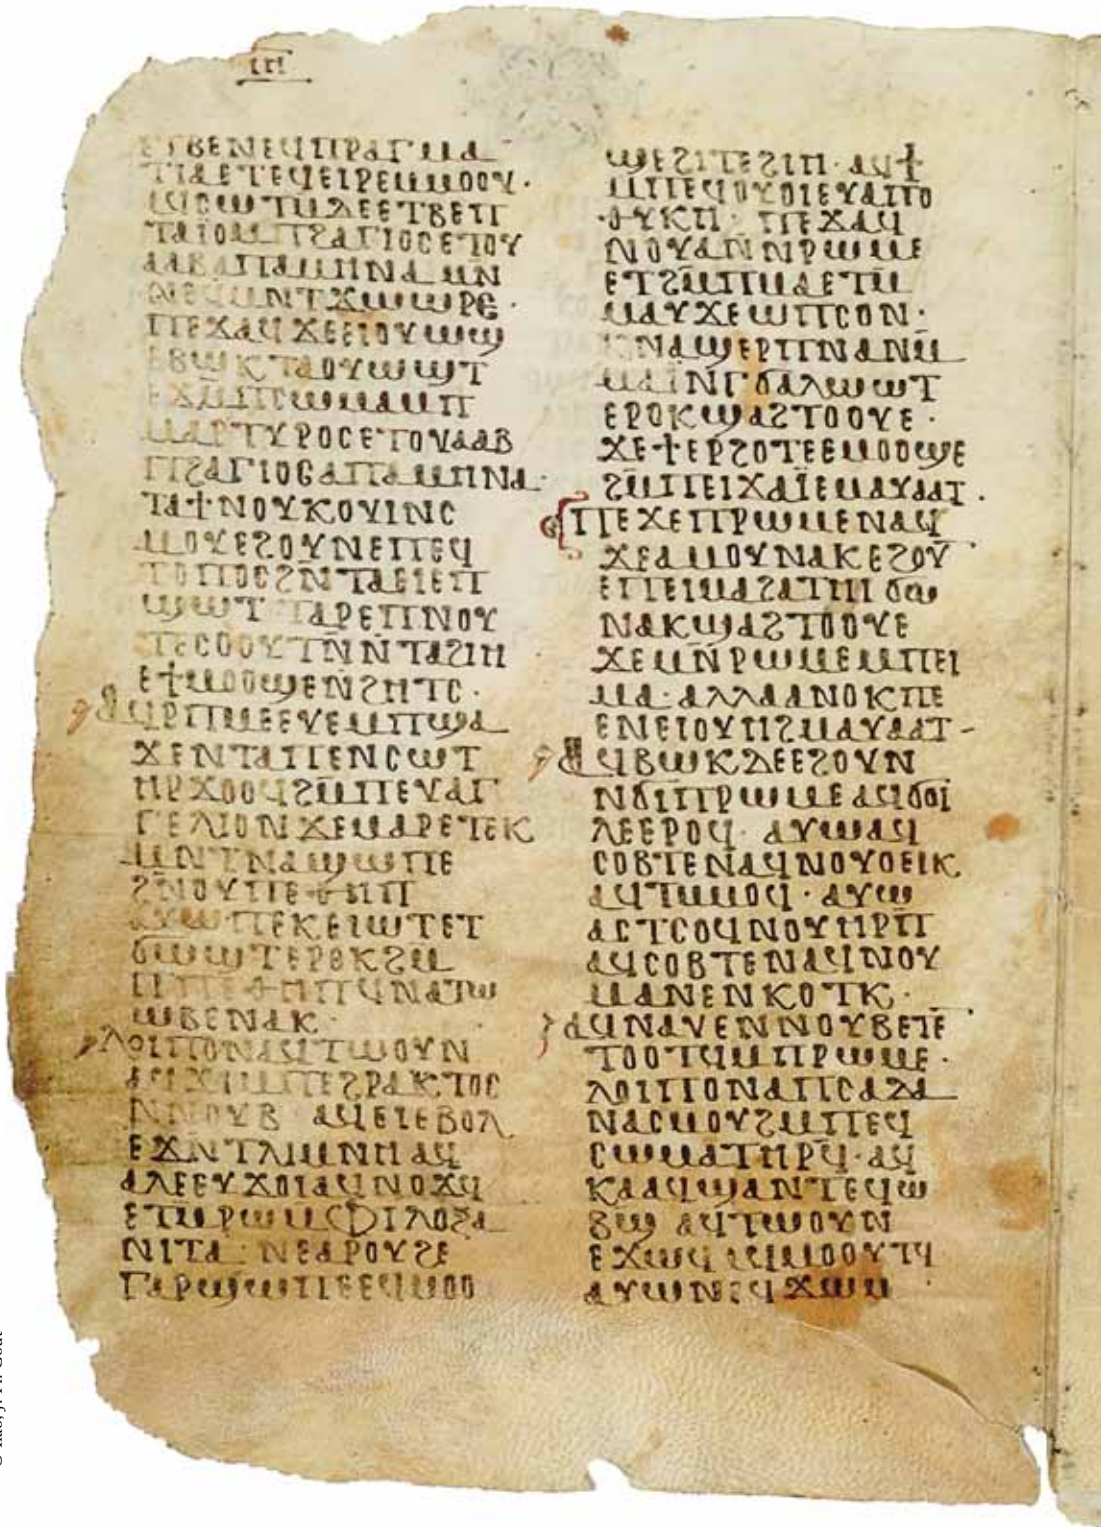 ⲉⲧⲃⲉⲛⲉϥⲡⲣⲁⲅⲙⲁ
ⲧⲓⲁⲉⲧⲉϥⲉⲓⲣⲉⲙⲙⲟⲟⲩ·
ⲁϥⲥⲱⲧⲙⲇⲉⲉⲧⲃⲉⲡ
ⲧⲁⲓⲟⲙⲡϩⲁⲅⲓⲟⲥⲉⲧⲟⲩ
ⲁⲁⲃⲁⲡⲁⲙⲏⲛⲁⲙⲛ
ⲛⲉϥⲙⲛⲧϫⲱⲱⲣⲉ·
ⲡⲉϫⲁϥϫⲉⲉⲓⲟⲩⲱϣ
ⲉⲃⲱⲕⲧⲁⲟⲩⲱϣⲧ
ⲉϫⲙⲡⲥⲱⲙⲁⲙⲡ
ⲙⲁⲣⲧⲩⲣⲟⲥⲉⲧⲟⲩⲁⲁⲃ
ⲡϩⲁⲅⲓⲟⲥⲁⲡⲁⲙⲏⲛⲁ·
ⲧⲁϯⲛⲟⲩⲕⲟⲩⲓⲛⲥ
ⲙⲟⲩⲉϩⲟⲩⲛⲉⲡⲉϥ
ⲧⲟⲡⲟⲥϩⲛⲧⲁⲉⲓⲉⲡ
ϣⲱⲧ ⲧⲁⲣⲉⲡⲛⲟⲩ
ⲧⲉⲥⲟⲟⲩⲧⲛ̄ⲛ̄ⲧⲁϩⲓⲏ
ⲉϯⲙⲟⲟϣⲉⲛϩⲏⲧⲥ·
ⲁϥⲣⲡⲙⲉⲉⲩⲉⲙⲡϣⲁ
ϫⲉⲛⲧⲁⲡⲉⲛⲥⲱⲧ
ⲏⲣϫⲟⲟϥϩⲙ̄ⲡⲉⲩⲁⲅ
ⲅⲉⲗⲓⲟⲛϫⲉⲙⲁⲣⲉⲧⲉⲕ
ⲙⲛⲧⲛⲁϣⲱⲡⲉ
ϩⲛⲟⲩⲡⲉⲑⲏⲡ
ⲁⲩⲱⲡⲉⲕⲉⲓⲱⲧⲉⲧ
ϭⲱϣⲧⲉⲣⲟⲕϩⲙ
ⲡⲡⲉⲑⲏⲡϥⲛⲁⲧⲱ
ⲱⲃⲉⲛⲁⲕ·
ⲗⲟⲓⲡⲟⲛⲁϥⲧⲱⲟⲩⲛ
ⲁϥϫⲓⲙⲡⲉϩⲣⲁⲕⲧⲟⲥ
ⲛⲛⲟⲩⲃ ⲁϥⲉⲓⲉⲃⲟⲗ
ⲉϫⲛⲧⲗⲓⲙⲛⲏⲁϥ
ⲁⲗⲉⲉⲩϫⲟⲓⲁϥⲛⲟϫϥ
ⲉⲧⲙⲣⲱⲙⲫⲓⲗⲟϩⲁ
ⲛⲓⲧⲁ· ⲛⲉⲁⲣⲟⲩϩⲉ
ⲅⲁⲣϣⲱⲡⲉⲉϥⲙⲟⲟ
ϣⲉϩⲓⲧⲉϩⲓⲏ· ⲁϥϯ
ⲙⲡⲉϥⲟⲩⲟⲓⲉⲩⲁⲡⲟ
ⲑⲩⲕⲏ· ⲡⲉϫⲁϥ
ⲛⲟⲩⲁⲛⲛⲣⲱⲙⲉ
ⲉⲧϩⲙ̄ⲡⲙⲁⲉⲧⲙ̄
ⲙⲁⲩϫⲉⲱⲡⲥⲟⲛ·
ⲕⲛⲁϣⲉⲣⲡⲛⲁⲛⲙ̄
ⲙⲁⲓ̈ⲛⲅϭⲁⲗⲱⲱⲧ
ⲉⲣⲟⲕϣⲁϩⲧⲟⲟⲩⲉ·
ϫⲉϯⲉⲣϩⲟⲧⲉⲉⲙⲟⲟϣⲉ
ϩⲙ̄ⲡⲉⲓϫⲁⲓ̈ⲉⲙⲁⲩⲁⲁⲧ·
ⲡⲉϫⲉⲡⲣⲱⲙⲉⲛⲁϥ
ϫⲉⲁⲙⲟⲩⲛⲁⲕⲉϩⲟⲩ̄
ⲉⲡⲉⲓⲙⲁϩⲁⲧⲏⲓϭⲱ
ⲛⲁⲕϣⲁϩⲧⲟⲟⲩⲉ
ϫⲉⲙⲛ̄ⲣⲱⲙⲉⲙⲡⲉⲓ
ⲙⲁ· ⲁⲗⲗⲁⲁⲛⲟⲕⲡⲉ
ⲉⲛⲉⲓⲟⲩⲏϩⲙⲁⲩⲁⲁⲧ-
ⲁϥⲃⲱⲕⲇⲉⲉϩⲟⲩⲛ
ⲛϭⲓⲡⲣⲱⲙⲉⲁϥϭⲟⲓ̈
ⲗⲉⲉⲣⲟϥ· ⲁⲩⲱⲁϥ
ⲥⲟⲃⲧⲉⲛⲁϥⲛⲟⲩⲟⲉⲓⲕ
ⲁϥⲧⲙⲙⲟϥ· ⲁⲩⲱ
ⲁⲥⲧⲥⲟϥⲛⲟⲩⲏⲣⲡ̄
ⲁϥⲥⲟⲃⲧⲉⲛⲁϥⲛⲟⲩ
ⲙⲁⲛⲉⲛⲕⲟⲧⲕ·
ⲁϥⲛⲁⲩⲉⲛⲛⲟⲩⲃⲉⲧⲉ̄
ⲧⲟⲟⲧϥⲙⲡⲣⲱⲙⲉ·
ⲗⲟⲓⲡⲟⲛⲁⲡⲥⲁⲇⲁ
ⲛⲁⲥⲙⲟⲩϩⲙⲡⲉϥ
ⲥⲱⲙⲁⲧⲏⲣϥ̄·ⲁϥ
ⲕⲁⲁϥϣⲁⲛⲧⲉϥⲱ
ⲃϣ ⲁϥⲧⲱⲟⲩⲛ
ⲉϫⲱϥ ⲁϥⲙⲟⲟⲩⲧϥ
ⲁⲩⲱⲛⲉϥϫⲱⲙ